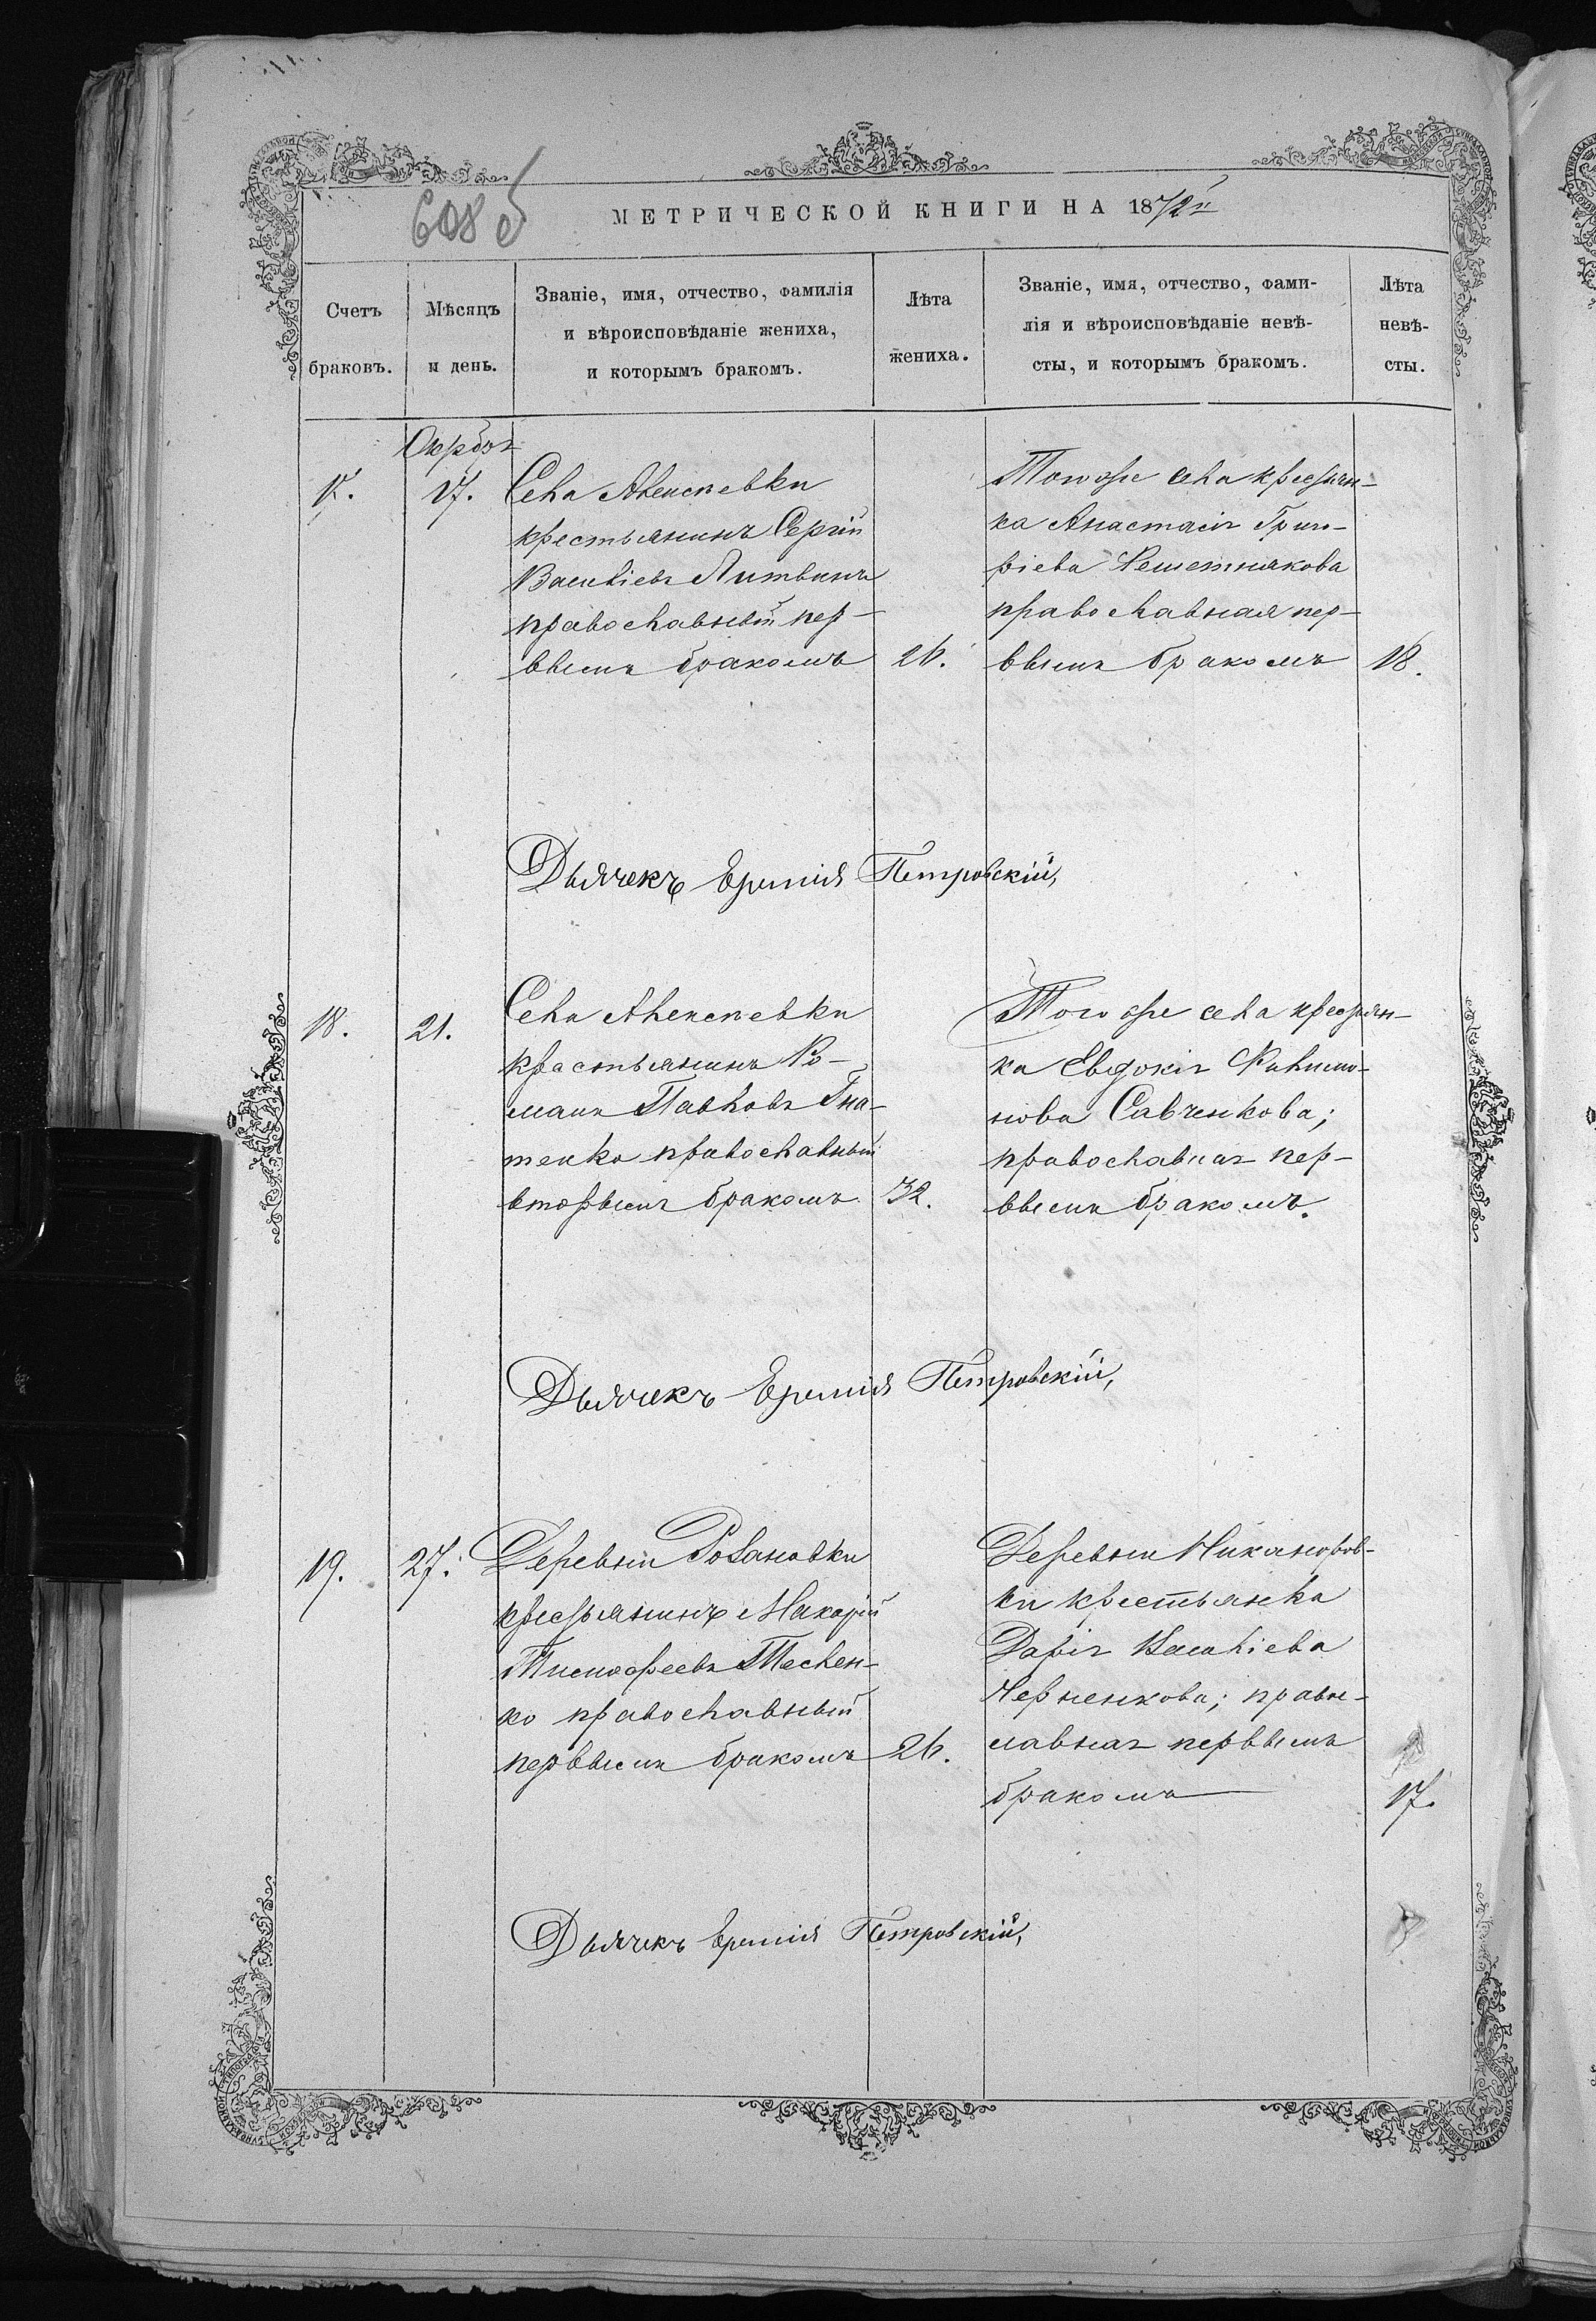 608 об
МЕТРИЧЕСКОЙ КНИГИ НА 1872й
Счетъ
браковъ.
Мѣсяцъ
и день.
Званіе, имя, отчество, фамилія
и вѣроисповѣданіе жениха,
и которымъ бракомъ.
Лѣта
жениха.
Званіе, имя, отчество, фами-
лія и вѣроисповѣданіе невѣ-
сты, и которымъ бракомъ.
Лѣта
невѣ-
сты.
17.
Октбрь
17.
Села Алексѣевки
крестьянинъ Сергій
Василіевъ Литвинъ
православный пер-
вымъ бракомъ
26.
Того же села крестьян-
ка Анастасія Григо-
ріева Решетнякова
православная пер-
вымъ бракомъ
18.
Дьячекъ Еремія Петровскій,
18.
21.
Села Алексѣевки
крестьянинъ Ро-
манъ Павловъ Гна-
тенко православный
вторымъ бракомъ
32.
Того же села крестьян-
ка Евдокія Филимо-
нова Савченкова;
православная пер-
вымъ бракомъ.
Дьячекъ Еремія Петровскій,
19.
27.
Деревни Розановки
крестьянинъ Макарій
Тимофеевъ Теслен-
ко православный
первымъ бракомъ
26.
Деревни Никаноров-
ки крестьянка
Дарія Василіева
Черненкова; право-
славная первымъ
бракомъ
17.
Дьячекъ Еремія Петровскій,